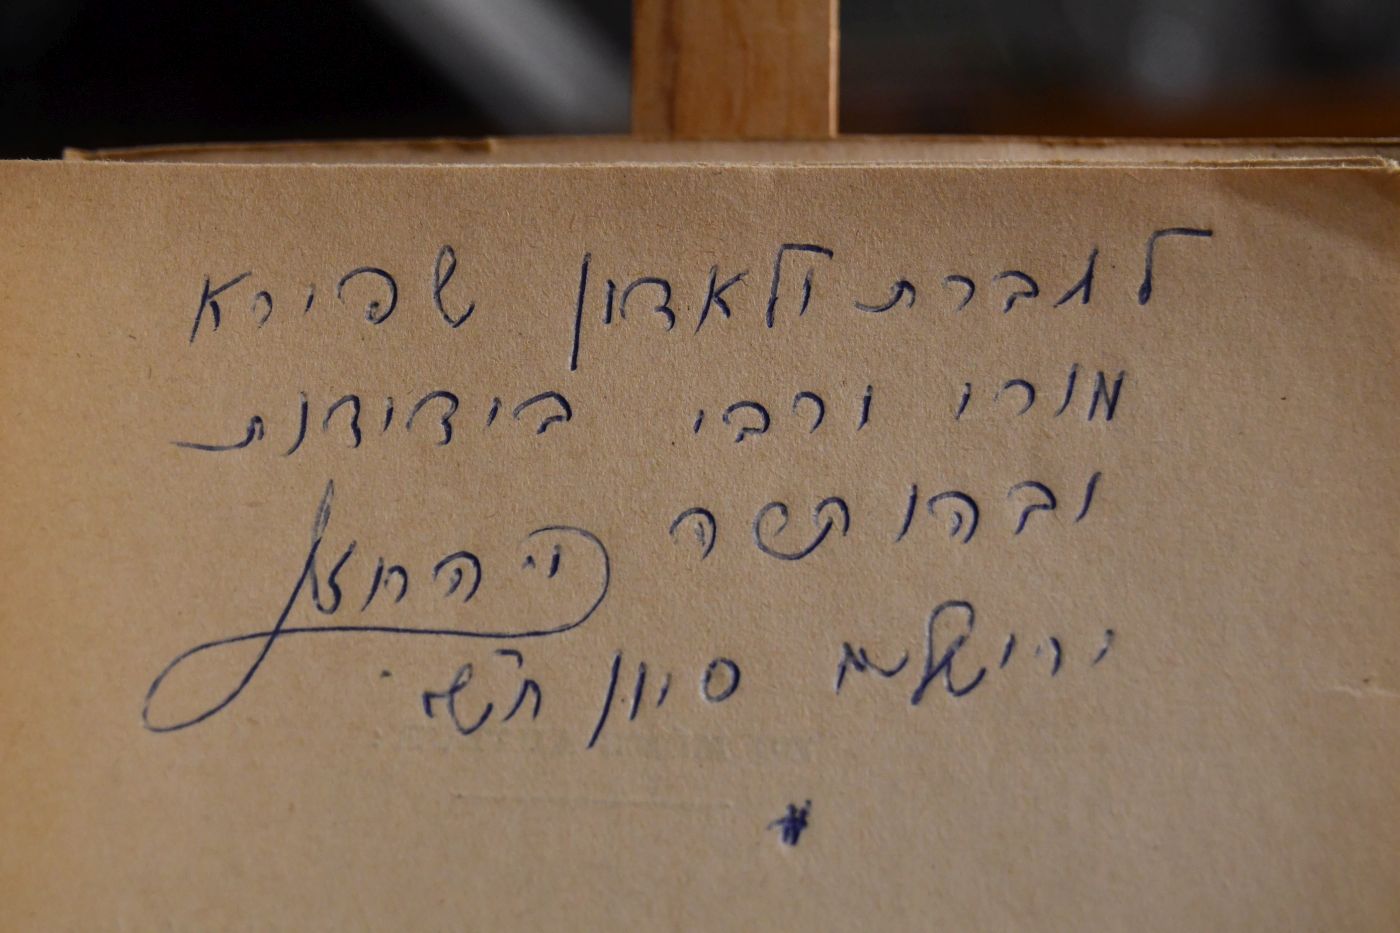 לגברת ולאדון שפירא
מורי ורבי בידידות
ובהוקרה
ירושלים סיון תש"י
#